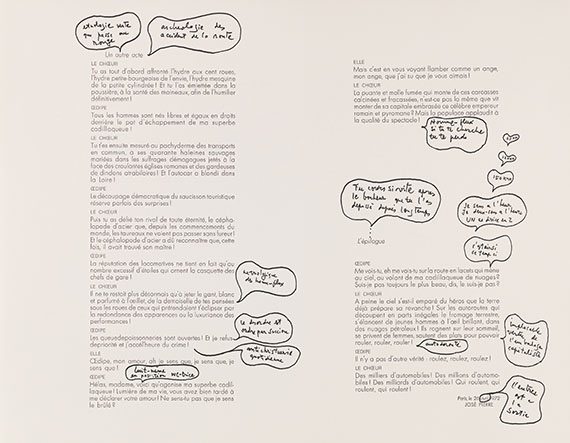 étologie verte
qui passe au
rouge
archéologie des
accident de la route
Un autre acte
LE CHŒUR
Tu as tout d'abord affronté l'hydre aux cent roues,
l'hydre petite-bourgeoise de l'envie, l'hydre mesquine
de la petite cylindrée ! Et tu l'as émiettée dans la
poussière, à la santé des moineaux, afin de l'humilier
définitivement !
ŒDIPE
Tous les hommes sont nés libres et égaux en droits
derrière le pot d'échappement de ma superbe
cadillaqueue !
LE CHŒUR
Tu t'es ensuite mesuré au pachyderme des transports
en commun, à ses quarante haleines sauvages
mariées dans les suffrages démagogues jetés à la
face des croulantes églises romanes et des gargouses
de dindons strabiolives ! Et l'autocar a blondi dans
la Loire !
ŒDIPE
Le découpage démocratique du saucisson touristique
réserve parfois des surprises !
LE CHŒUR
Puis tu as défié ton rival de toute éternité, le cépha-
lopode d'acier que, depuis les commencements du
monde, les taureaux ne voient pas passer sans fureur !
Et le céphalopode d'acier a dû reconnaître que, cette
fois, il avait trouvé son maître !
ŒDIPE
La réputation des locomotives ne tient en fait qu'au
nombre excessif d'étoiles qui ornent la casquette des
chefs de gare !
LE CHŒUR
Il ne te restait plus désormais qu'à jeter le gant, blanc
et parfumé à l'œillet, de la demoiselle de tes pensées
sous les roues de ceux qui prétendaient t'éclipser par
la redondance des apparences ou la luxuriance des
performances !
ŒDIPE
Les queuedepoissonneront sont ouvertes ! Et je refuse
depriorité et j'accélère du crime !
ELLE
Œdipe, mon amour, ah je sens que, je sens que, je
sens que !
ŒDIPE
Hélas, madame, voici qu'agonise ma superbe cadil-
laqueue ! Lumière de ma vie, vous avez bien tardé à
me déclarer votre amour ! Ne sens-tu pas que je sens
le brûlé ?
le désordre est
ordre par
quotidienne
ELLE
Mais c'est en vous voyant flamber comme un ange,
mon ange, que j'ai su que je vous aimais !
LE CHŒUR
La puante et molle fumée qui monte de ces carcasses
calcinées et fracassées, n'est-ce pas la même que vit
monter de sa capitale embrasée ce célèbre empereur
romain et pyromane ? Mais la populace applaudit à
la qualité du spectacle !
Homme-flux
si tu te cherche
tu te perds
Tu cours si vite après
le bonheur que tu l'as
dépassé depuis longtemps
L'épilogue
ŒDIPE
Me vois-tu, eh me vois-tu sur la route en lacets qui mène
au ciel, au volant de ma cadillaqueue de nuages ?
Suis-je pas toujours le plus beau, dis, le suis-je pas ?
LE CHŒUR
A peine le ciel s'est-il emparé du héros que la terre
déjà prépare sa revanche ! Sur les autoroutes qui
découpent en parts inégales le fromage terrestre,
s'élancent de jeunes hommes à l'œil brillant, dans
des nuages pétroleux ! Ils rognent sur leur sommeil,
se privent de femmes, sautent des plats pour pouvoir
rouler, rouler, rouler !
autoroute
ŒDIPE
Il n'y a pas d'autre vérité : roulez, roulez, roulez !
LE CHŒUR
Des milliers d'automobiles ! Des millions d'automo-
biles ! Des milliards d'automobiles ! Qui roulent, qui
roulent, qui roulent, qui roulent !
implacable
vérité de
l'univers
capitaliste
l'entrée
est à
la
sortie
Paris, le 20 1972
JOSÉ PIERRE